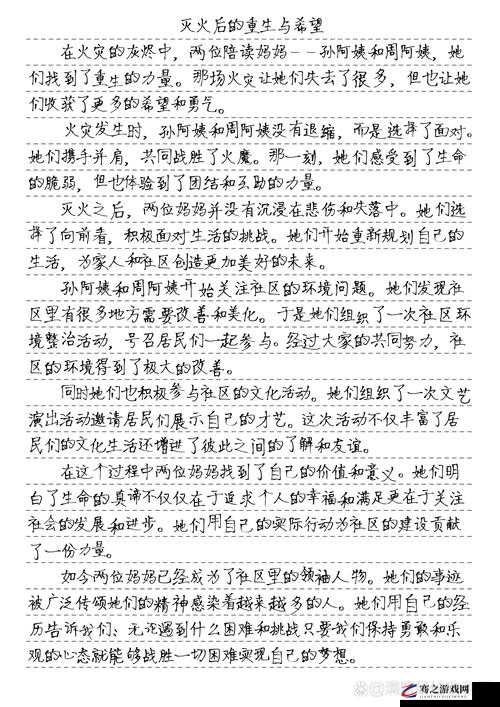 灭火后的重生与希望
在火灾的灰烬中，两位陪读妈妈--孙阿姨和周阿姨，她
们找到了重生的力量。那场火灾让她们失去了很多，但也让她
们收获了更多的希望和勇气。
火灾发生时，孙阿姨和周阿姨没有退缩，而是选择了面对。
她们携手并肩，共同战胜了火魔。那一刻，她们感受到了生命
的脆弱，但也体验到了团结和互助的力量。
灭火之后，两位妈妈并没有沉浸在悲伤和失落中。她们选
择了向前看，积极面对生活的挑战。她们开始重新规划自己的
生活，为家人和社区创造更加美好的未来。
孙阿姨和周阿姨开始关注社区的环境问题。她们发现社
区里有很多地方需要改善和美化。于是她们组织了一次社区环
境整治活动，号召居民们一起参与。经过大家的共同努力，社
区的环境得到了极大的改善。
同时她们也积极参与社区的文化活动。她们组织了一次文艺
演出活动邀请居民们展示自己的才艺。这次活动不仅丰富了居
民们的文化生活还增进了彼此之间的了解和友谊。
在这个过程中两位妈妈找到了自己的价值和意义。她们明
白了生命的真谛不仅仅在于追求个人的幸福和满足更在于关注
社会的发展和进步。她们用自己的实际行动为社区的建设贡献
了一份力量。
如今两位妈妈已经成为了社区里的领袖人物。她们的事迹
被广泛传颂她们的精神感染着越来越多的人。她们用自己的经
历告诉我们：无论遇到什么困难和挑战只要我们保持勇敢和乐
观的心态就能够战胜一切困难实现自己的梦想。
骞之游戏网